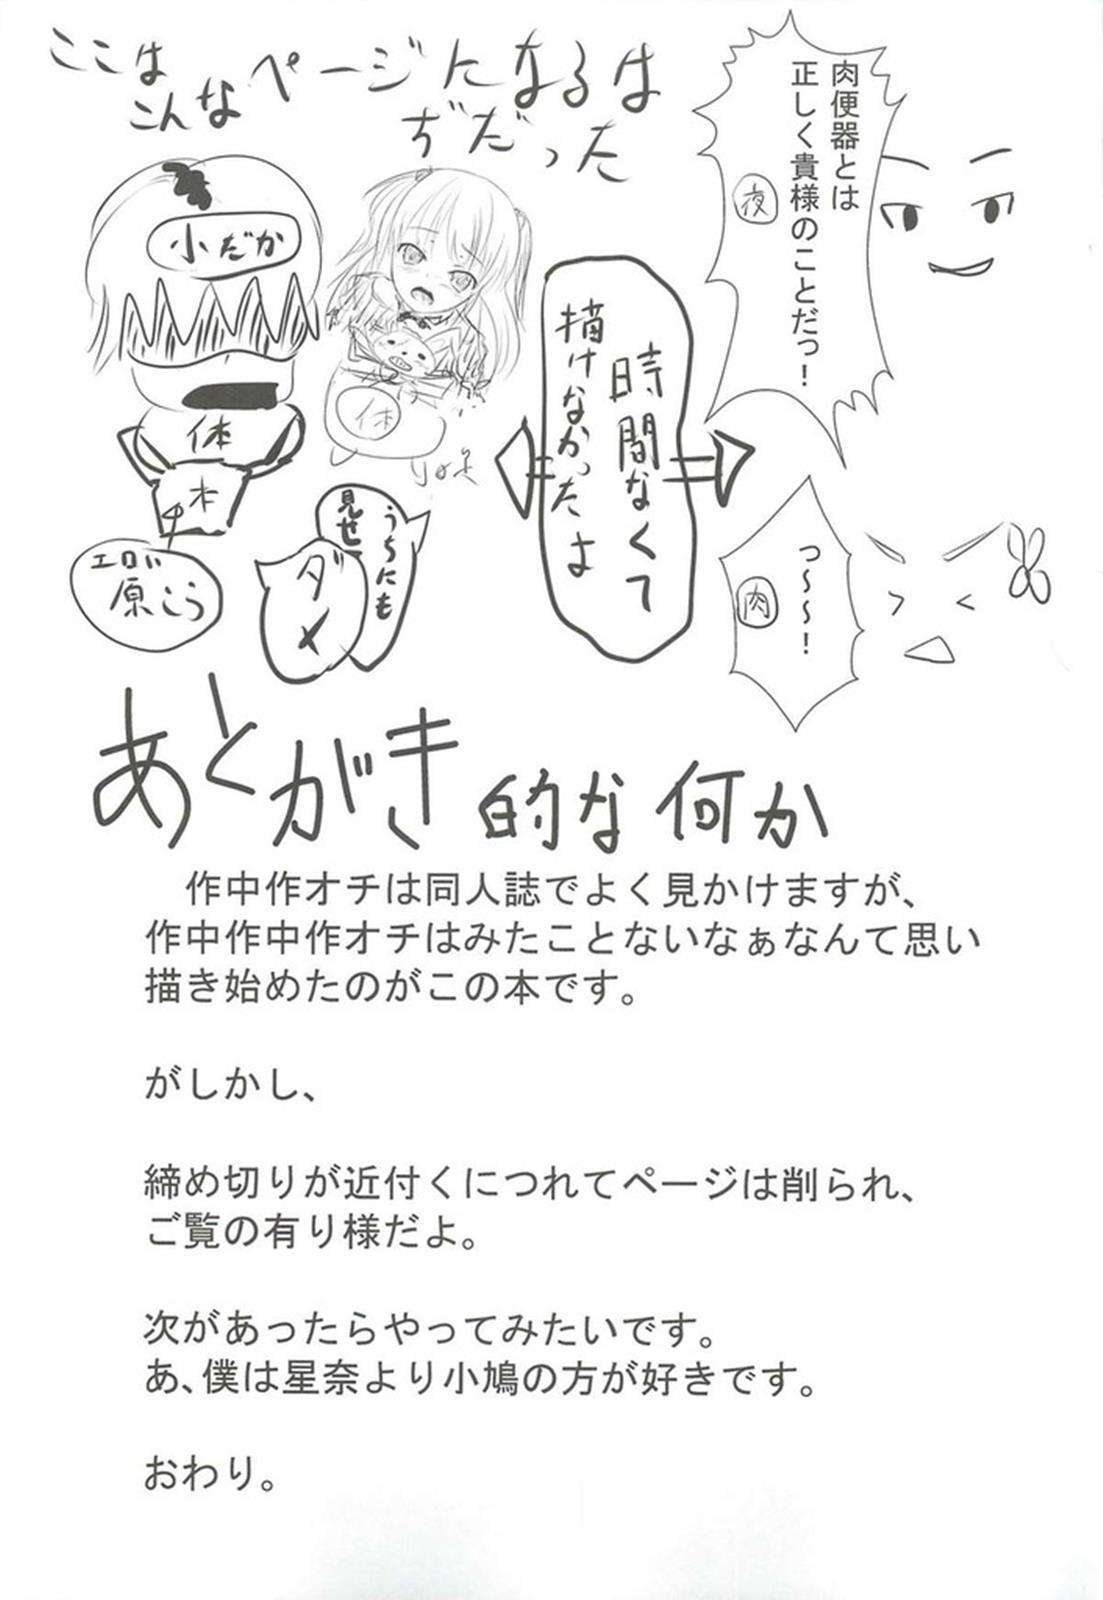 ここは
こんなページになるは
ずだった
肉便器とは
正しく貴様のことだっ！
夜
小だか
体
本
体
時間なくて
描けなかったよ
うちにも
見せて
ダメ
エロい
原こう
っ～～～！
肉
あとがき的な何か
作中作オチは同人誌でよく見かけますが、
作中作中作オチはみたことないなぁなんて思い
描き始めたのがこの本です。
がしかし、
締め切りが近付くにつれてページは削られ、
ご覧の有り様だよ。
次があったらやってみたいです。
あ、僕は星奈より小鳩の方が好きです。
おわり。